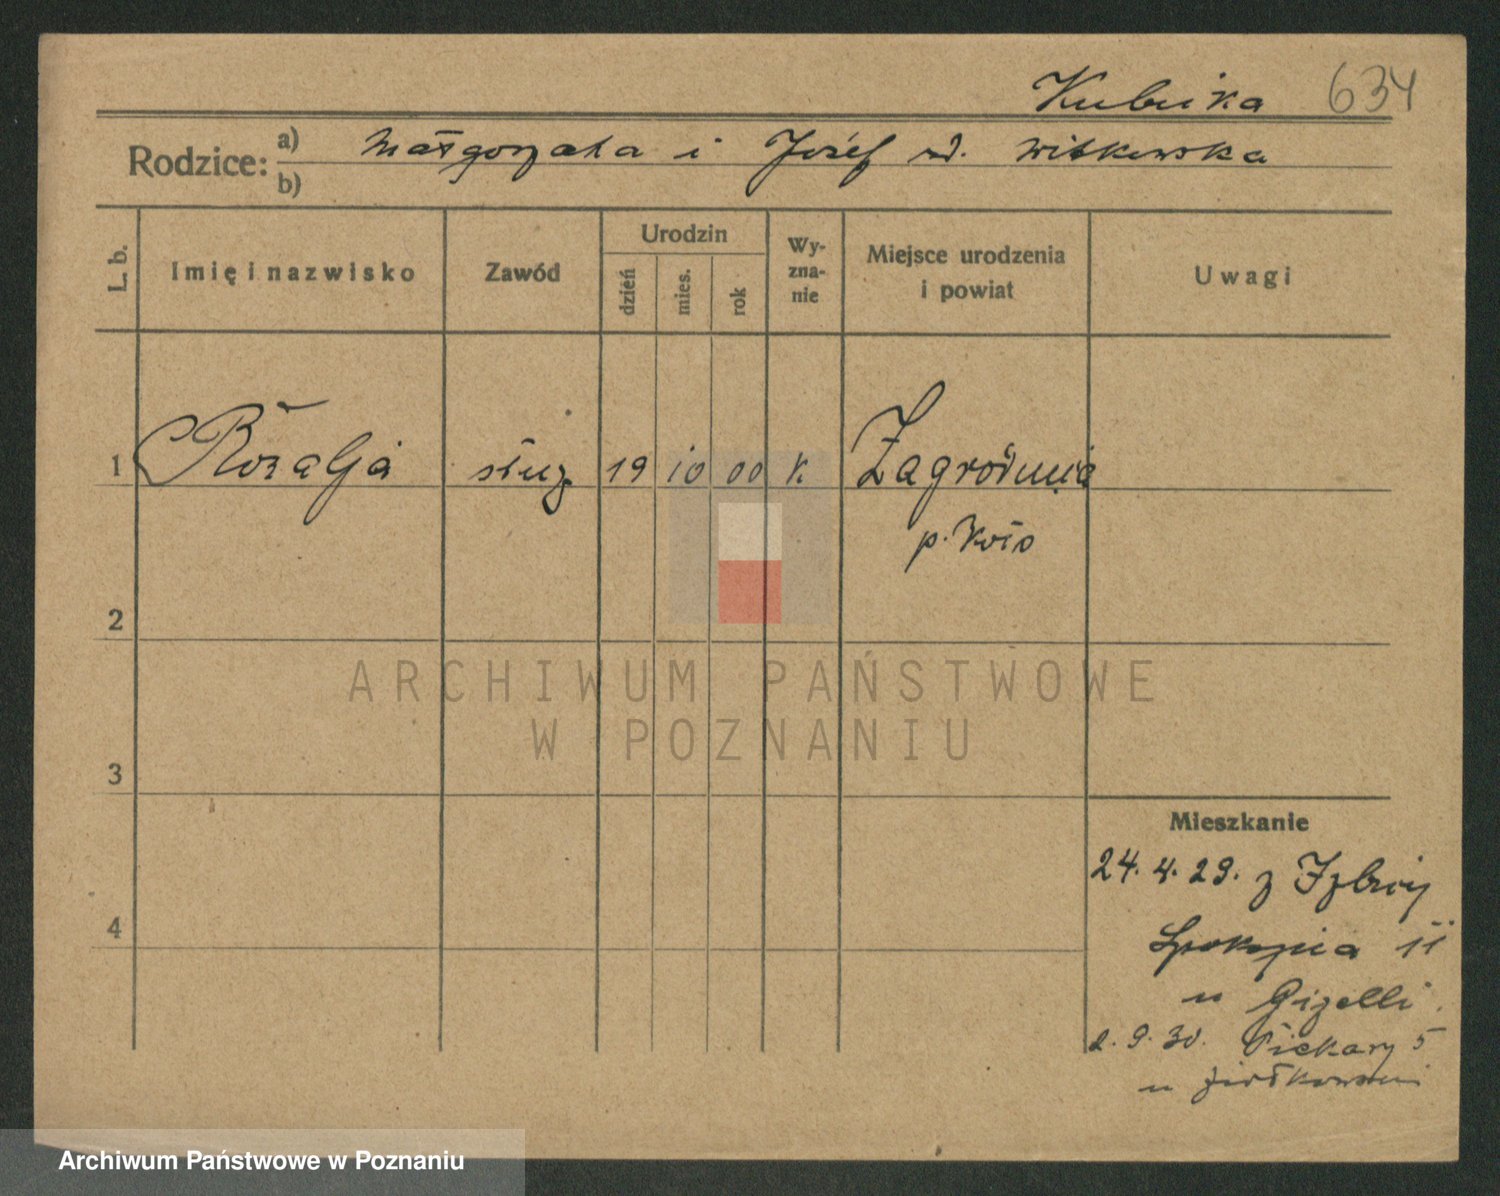 Kubicka 634
Rodzice: a) Małgorzata i Józef ur. Witkowska
b)
L. b.
Imię i nazwisko
Zawód
Urodzin
dzień
mies.
rok
Wy-
zna-
nie
Miejsce urodzenia
i powiat
Uwagi
1 Rozalja służ. 19 10 00 k. Zagrodnia
p. Koło
2
ARCHIWUM PAŃSTWOWE
W POZNANIU
3
Mieszkanie
24. 4. 29. z Izbicy
4
Spokojna 11
u Gizelli.
2. 9. 30. Piekary 5
u Ziółkowski
Archiwum Państwowe w Poznaniu